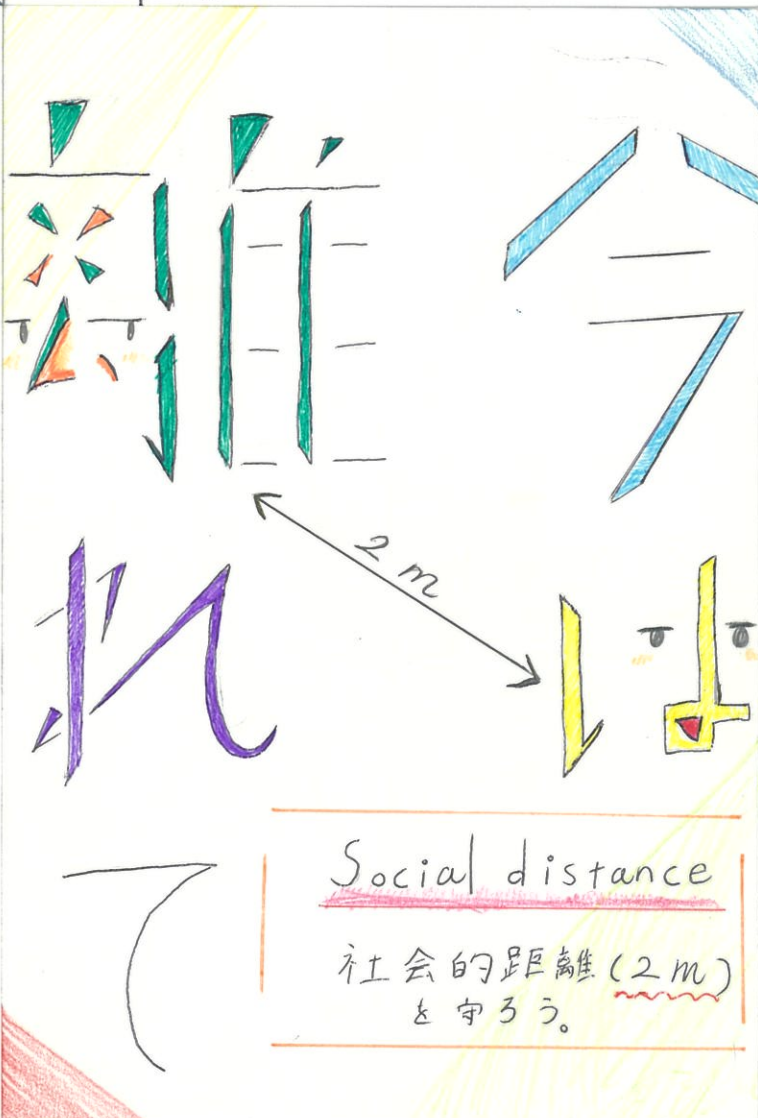 今は
離れて
2m
Social distance
社会的距離(2m)
を守ろう。